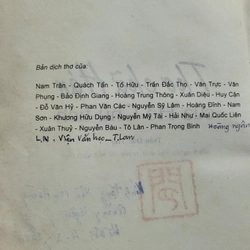 Bản dịch thơ của:
Nam Trân - Quách Tấn - Tố Hữu - Trần Đắc Thọ - Văn Trực - Văn
Phụng - Bảo Định Giang - Hoàng Trung Thông - Xuân Diệu - Huy Cận
- Đỗ Văn Hỷ - Phan Văn Các - Nguyễn Sỹ Lâm - Hoàng Đình - Nam
Sơn - Khương Hữu Dụng - Nguyễn Mỹ Tài - Hải Như - Mai Quốc Liên
- Xuân Thuỷ - Nguyễn Bàu - Tô Lân - Phan Trọng Bình Hoàng
Viện Văn học - T. Lan